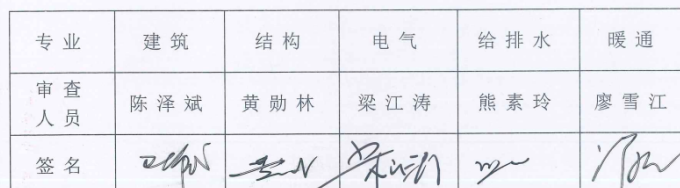 专业 建筑 结构 电气 给排水 暖通
审查人员 陈泽斌 黄勋林 梁江涛 熊素玲 廖雪江
签名